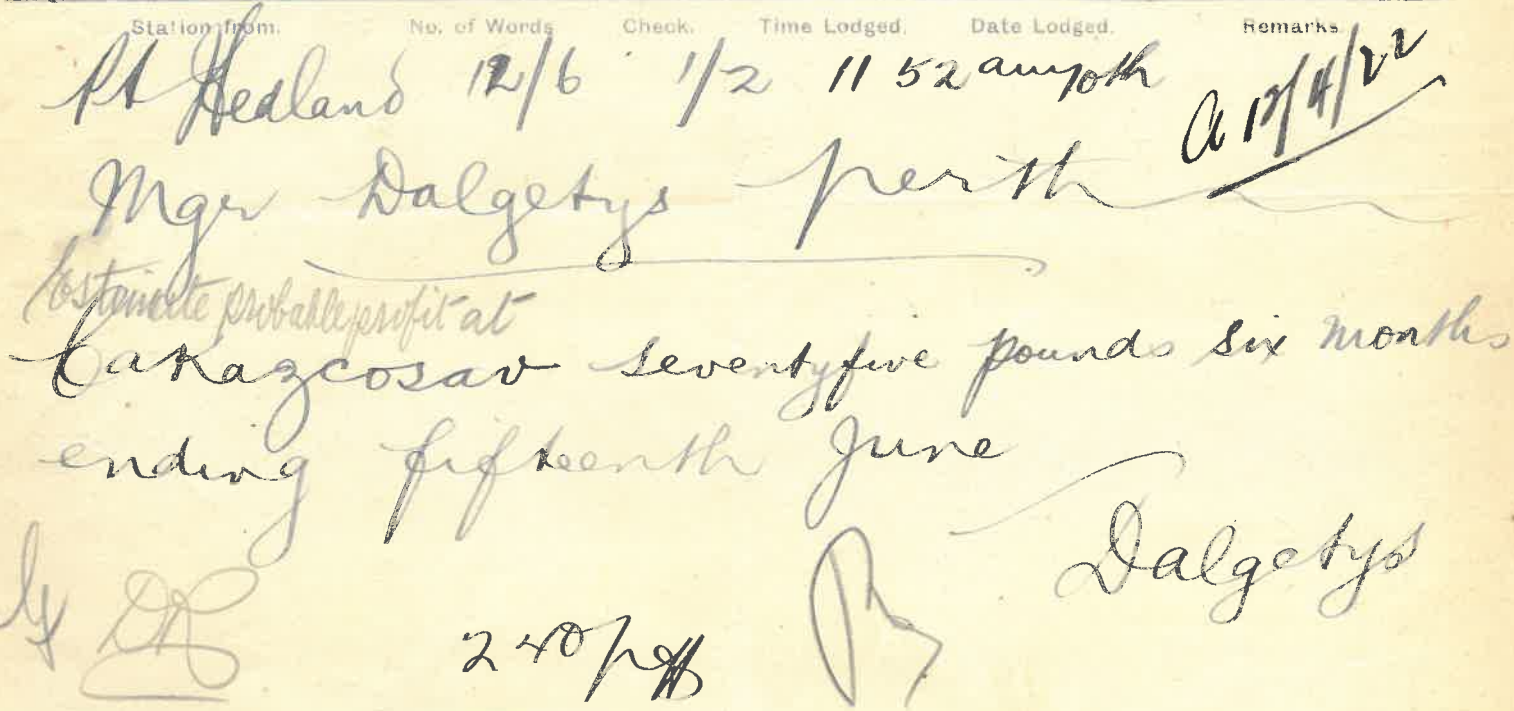 Station from. No. of Words Check. Time Lodged. Date Lodged. Remarks
Pt Hedland 12/6 1/2 11 52 am 10th
a 12/4/22
Mgr Dalgetys perth
Estimate probable profit at
Cakazcosav seventyfive pounds six months
ending fifteenth June
Dalgetys
240 p